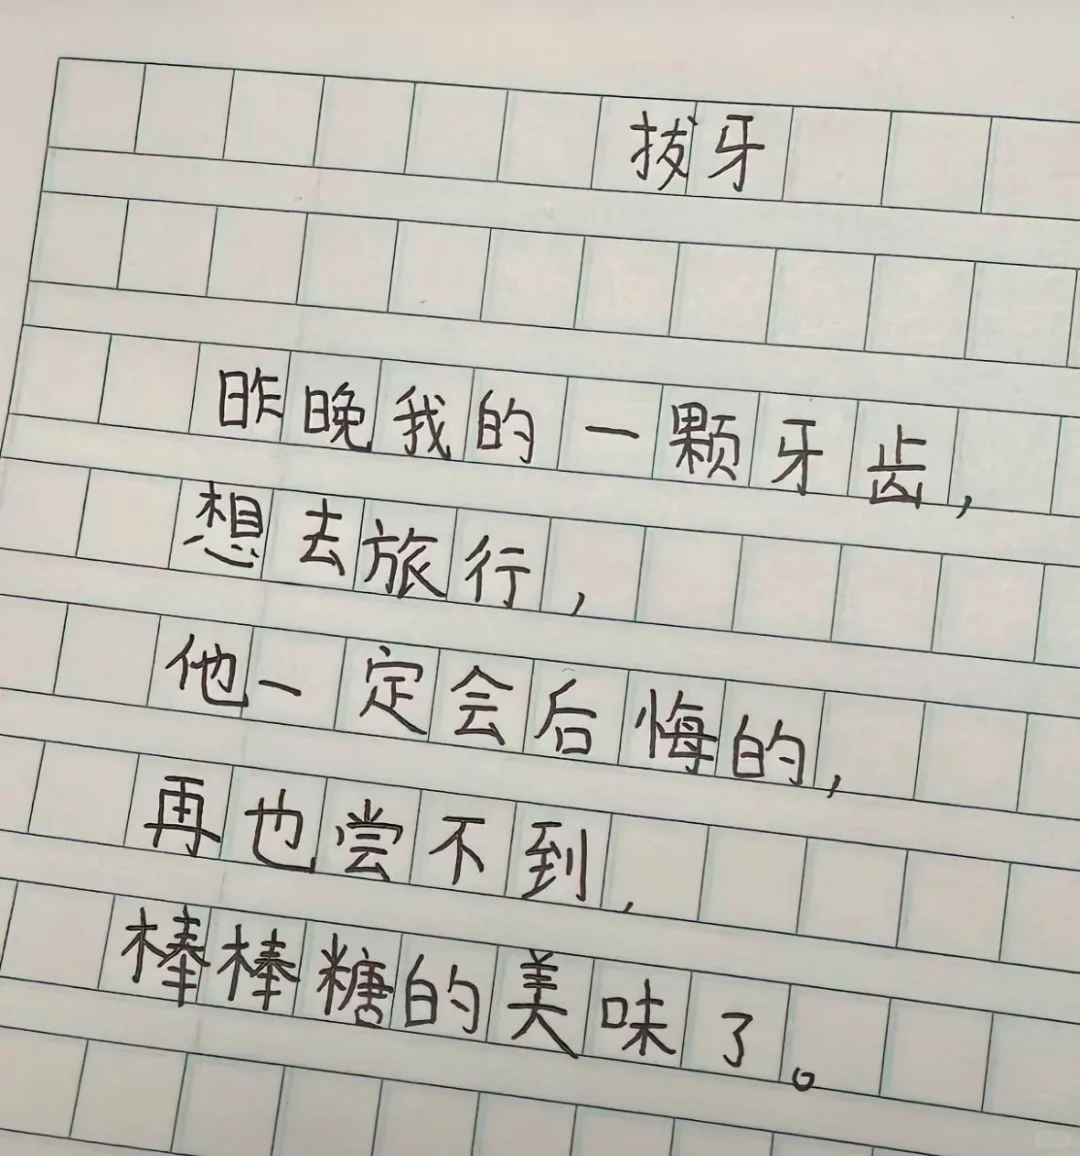 拔牙
昨晚我的一颗牙齿,
想去旅行,
他一定会后悔的,
再也尝不到,
棒棒糖的美味了。